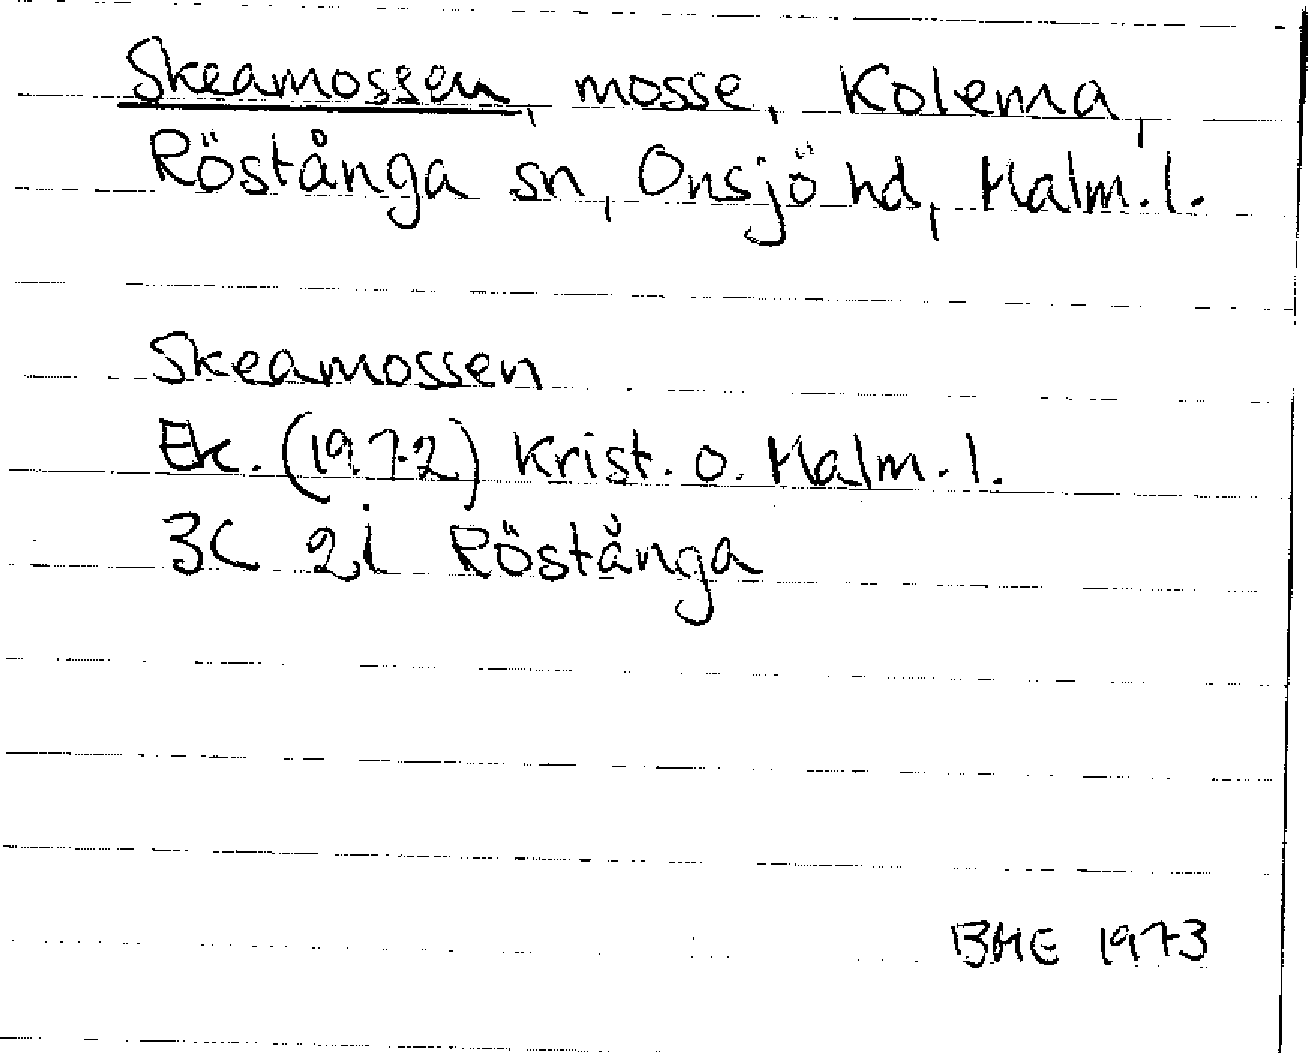 Skeamossen, mosse, Kolema,
Röstånga sn, Onsjö hd, Malm.l.
Skeamossen
Ek. (1972) Krist. o. Malm.l.
3C 2i Röstånga
BHE 1973